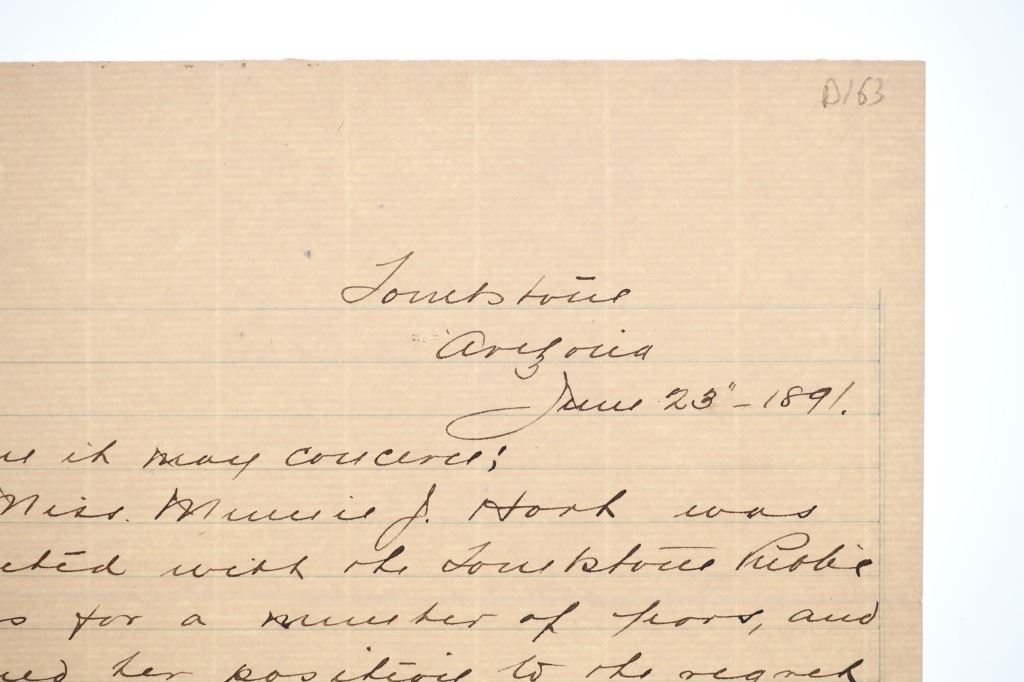 D163
Tombstone
Arizona
June 23" - 1891.
it may concern:
Miss. Minnie J. Hart was
with the Tombstone Public
s for a number of years, and
her position to the regret